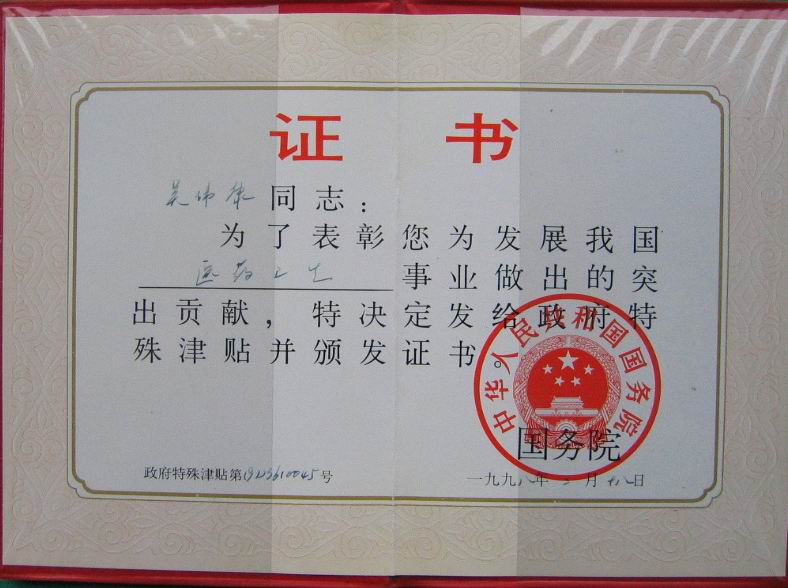 证 书
吴伟康同志：
为了表彰您为发展我国
医药卫生事业做出的突
出贡献，特决定发给政府特
殊津贴并颁发证书。
中华人民共和国国务院
国务院
政府特殊津贴第号
一九九八年 月十八日